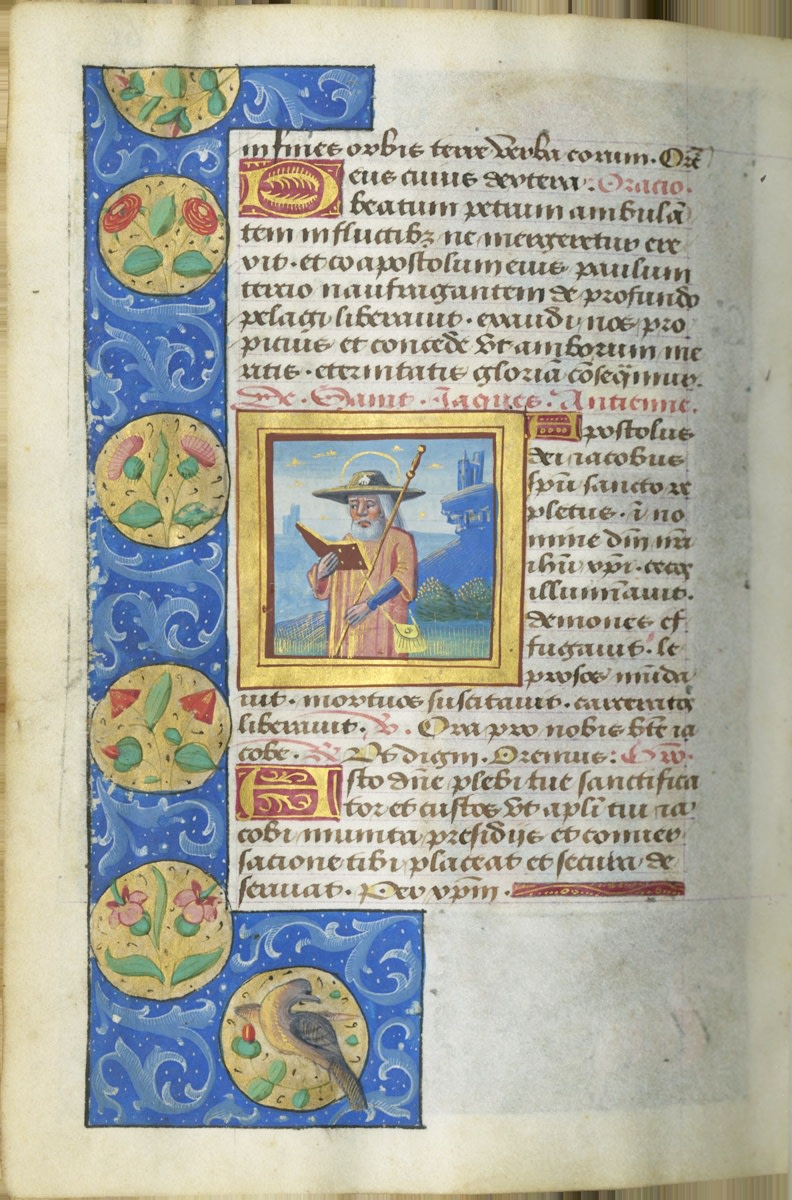 in fines orbis terre verba eorum. Orẽ
Deus cuius dextera. Oracio.
beatum petrum ambulã
tem in fluctibꝫ ne mergeretur ere
xit. et coapostolum eius paulum
tercio naufragantem de profundo
pelagi liberauit. exaudi nos pro
picius et concede vt amborum me
ritis. eternitatis gloriã cõseq̃mur.
De. Saint. Jaques. Antienne.
Apostolus
dei iacobus
spũ sancto re
pletus. ĩ no
mine dñi nr̃i
ihũ xpi. cecos
illuminauit.
demones ef
fugauit. le
prosos mũda
uit. mortuos suscitauit. carceratos
liberauit. v̾. Ora pro nobis bt̃e ia
cobe. ℟ Vt digni. Oremus: Orõ.
Esto dñe plebi tue sanctifica
tor et custos vt apl̃i tui ia
cobi munita presidijs et conuer
sacione tibi placeat et secura de
seruiat. Per xpm̃.